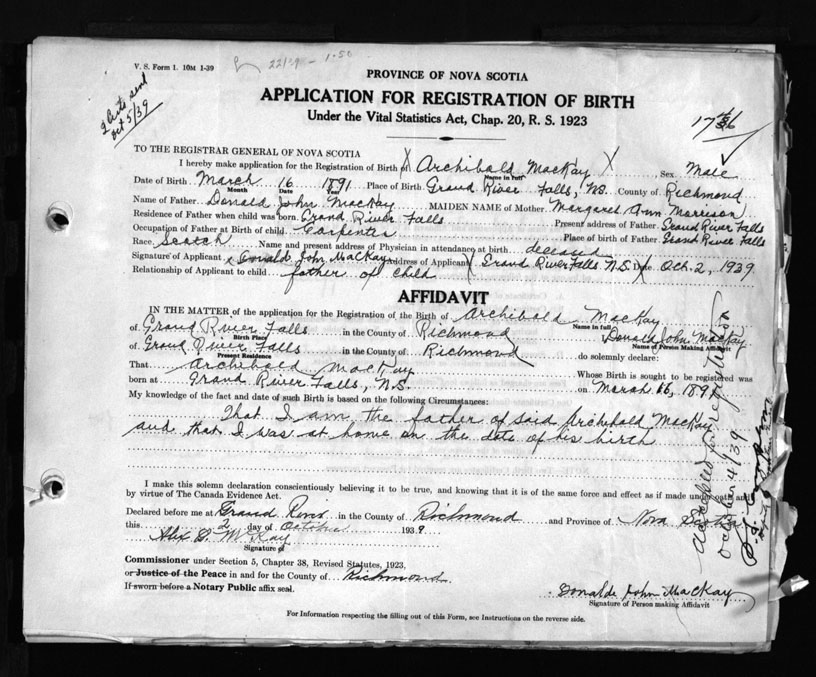 V. S. Form 1. 10M 1-39
2 Certs sent
Oct 5/39
PROVINCE OF NOVA SCOTIA
APPLICATION FOR REGISTRATION OF BIRTH
Under the Vital Statistics Act, Chap. 20, R. S. 1923
TO THE REGISTRAR GENERAL OF NOVA SCOTIA
I hereby make application for the Registration of Birth of Archibald MacKay Sex Male
Name in Full
Date of Birth March 16 1891 Place of Birth Grand River Falls, N.S. County of Richmond
Month Date Year
Name of Father Donald John MacKay MAIDEN NAME of Mother Margaret Ann Morrison
Residence of Father when child was born Grand River Falls Present address of Father Grand River Falls
Occupation of Father at Birth of child Carpenter Place of birth of Father Grand River Falls
Race Scotch Name and present address of Physician in attendance at birth deceased
Signature of Applicant x Donald John MacKay Address of Applicant Grand River Falls N.S. Date Oct. 2, 1939
Relationship of Applicant to child father of child
AFFIDAVIT
IN THE MATTER of the application for the Registration of the Birth of Archibald MacKay
Name in full
of Grand River Falls in the County of Richmond Donald John MacKay
Birth Place Name of Person Making Affidavit
of Grand River Falls in the County of Richmond do solemnly declare:
Present Residence
That Archibald MacKay Whose Birth is sought to be registered was
born at Grand River Falls, N.S. on March 16, 1891
My knowledge of the fact and date of such Birth is based on the following Circumstances:
That I am the father of said Archibald MacKay
and that I was at home on the date of his birth
I make this solemn declaration conscientiously believing it to be true, and knowing that it is of the same force and effect as if made under oath and
by virtue of The Canada Evidence Act.
Declared before me at Grand River in the County of Richmond and Province of Nova Scotia
this 2 day of October 1939
Alex
Signature of
Commissioner under Section 5, Chapter 38, Revised Statutes, 1923,
or Justice of the Peace in and for the County of Richmond.
If sworn before a Notary Public affix seal.
Donald John MacKay
Signature of Person making Affidavit
For Information respecting the filling out of this Form, see Instructions on the reverse side.
Accepted for registration
October 4/39